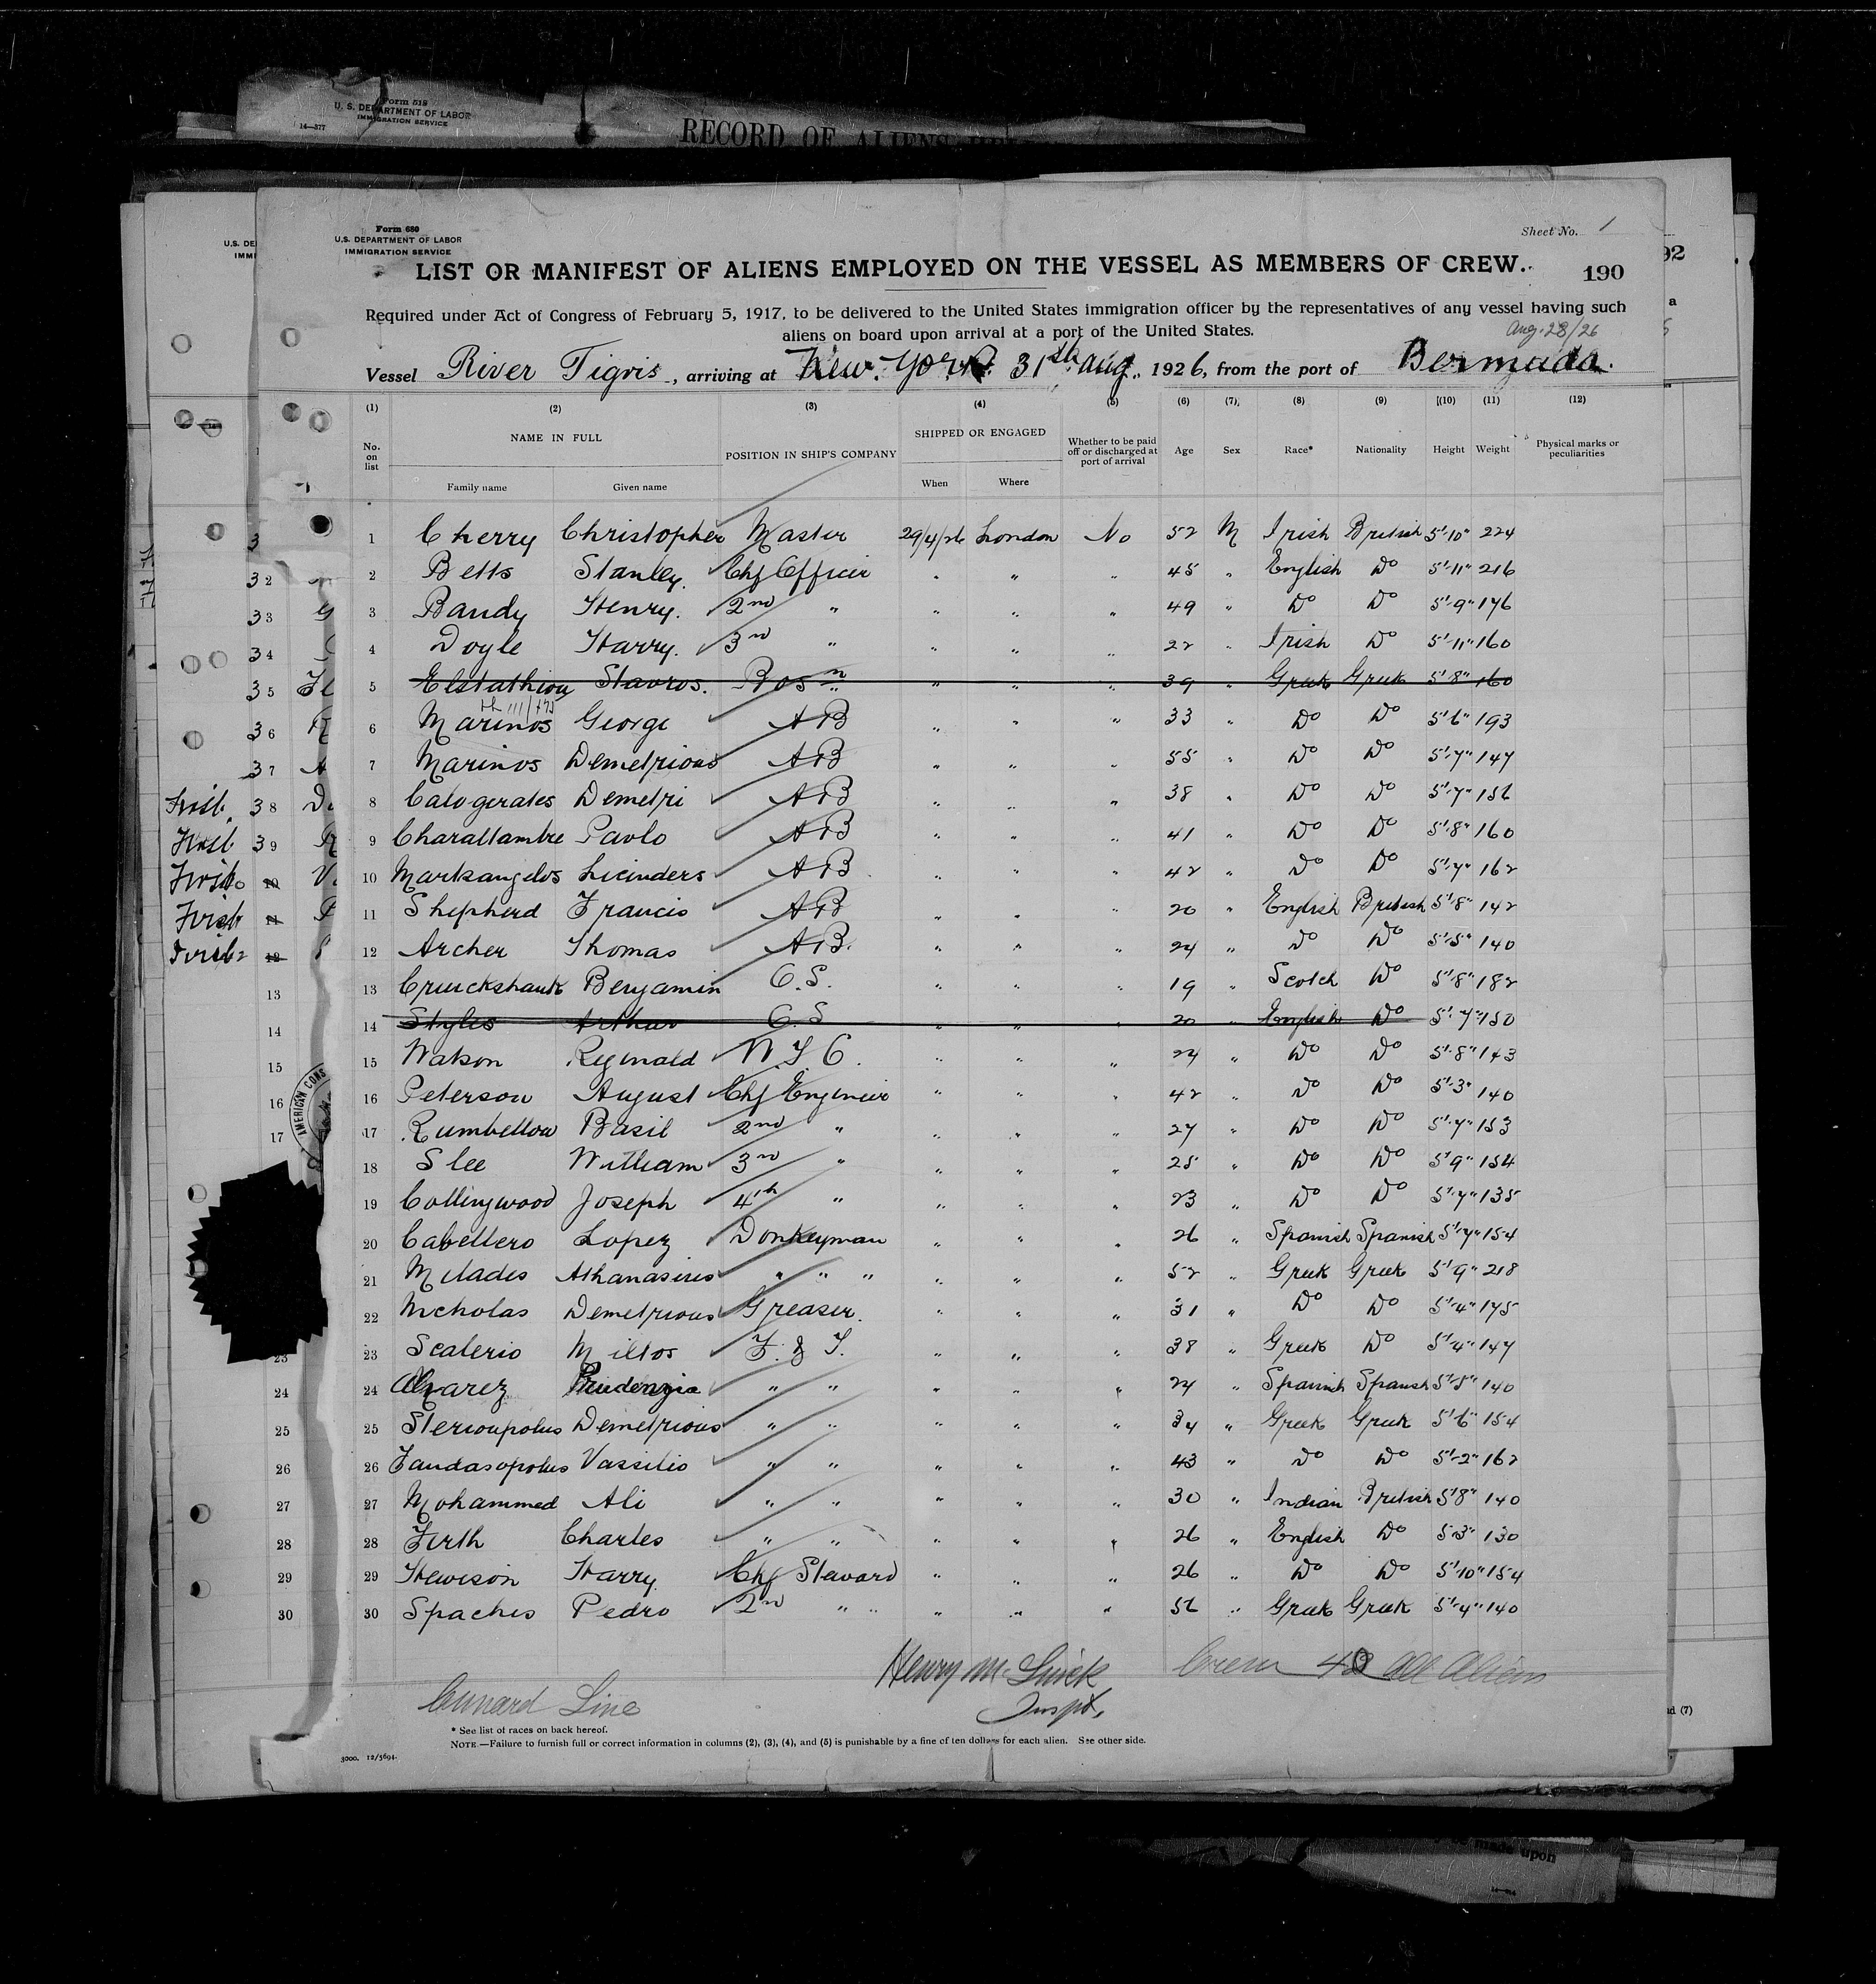 Form 519
U. S. DEPARTMENT OF LABOR
IMMIGRATION SERVICE
14—377
RECORD OF ALIENS
Form 680
U.S. DEPARTMENT OF LABOR
IMMIGRATION SERVICE
Sheet No. 1
LIST OR MANIFEST OF ALIENS EMPLOYED ON THE VESSEL AS MEMBERS OF CREW.
190
Required under Act of Congress of February 5, 1917, to be delivered to the United States immigration officer by the representatives of any vessel having such
aliens on board upon arrival at a port of the United States.
Aug. 28/26
Vessel River Tigris, arriving at New York 31st Aug., 1926, from the port of Bermuda.
(1) (2) (3) (4) (5) (6) (7) (8) (9) (10) (11) (12)
No. on list NAME IN FULL POSITION IN SHIP'S COMPANY SHIPPED OR ENGAGED Whether to be paid off or discharged at port of arrival Age Sex Race* Nationality Height Weight Physical marks or peculiarities
Family name Given name When Where
1 Cherry Christopher Master 29/4/26 London No 52 M Irish British 5'10" 224
2 Betts Stanley. Chf Officer " " " 45 " English Do 5'11" 216
3 Bandy Henry. 2nd " " " " 49 " Do Do 5'9" 176
4 Doyle Harry. 3rd " " " " 22 " Irish Do 5'11" 160
5 Elstathiou Stavros. Bosn " " " 39 " Greek Greek 5'8" 160
6 Marinos George AB " " " 33 " Do Do 5'6" 193
7 Marinos Demetrious AB " " " 55 " Do Do 5'7" 147
8 Calogerates Demetri AB " " " 38 " Do Do 5'7" 156
9 Charallambre Pavlo AB " " " 41 " Do Do 5'8" 160
10 Markangelos Licinders AB " " " 42 " Do Do 5'7" 162
11 Shepherd Francis AB " " " 20 " English British 5'8" 142
12 Archer Thomas AB. " " " 24 " Do Do 5'5" 140
13 Cruickshank Benjamin O.S. " " " 19 " Scotch Do 5'8" 182
14 Styles Arthur O.S " " " 20 " English Do 5'7" 150
15 Watson Reginald W.T.O. " " " 24 " Do Do 5'8" 143
16 Peterson August Chf Engineer " " " 42 " Do Do 5'3" 140
17 Rumbellow Basil 2nd " " " " 27 " Do Do 5'7" 153
18 Slee William 3rd " " " " 25 " Do Do 5'9" 154
19 Collingwood Joseph 4th " " " " 23 " Do Do 5'7" 135
20 Cabellero Lopez Donkeyman " " " 26 " Spanish Spanish 5'7" 154
21 Milades Athanasius " " " " " " 52 " Greek Greek 5'9" 218
22 Nicholas Demetrious Greaser. " " " 31 " Do Do 5'4" 175
23 Scalerio Miltos F. & T. " " " 38 " Greek Do 5'4" 147
24 Alvarez Prudenzia " " " " " 24 " Spanish Spanish 5'5" 140
25 Sterioupolus Demetrious " " " " " 34 " Greek Greek 5'6" 154
26 Fandasopolus Vassilio " " " " " 43 " Do Do 5'2" 162
27 Mohammed Ali " " " " " 30 " Indian British 5'8" 140
28 Firth Charles " " " " " 26 " English Do 5'3" 130
29 Hewison Harry Chf Steward " " " 26 " Do Do 5'10" 154
30 Spaches Pedro 2nd " " " " 56 " Greek Greek 5'4" 140
Henry M. Quick
Inspt.
Crew 40 all Aliens
Cunard Line
* See list of races on back hereof.
NOTE.—Failure to furnish full or correct information in columns (2), (3), (4), and (5) is punishable by a fine of ten dollars for each alien. See other side.
3000. 12/5694.
AMERICAN CONS
made upon